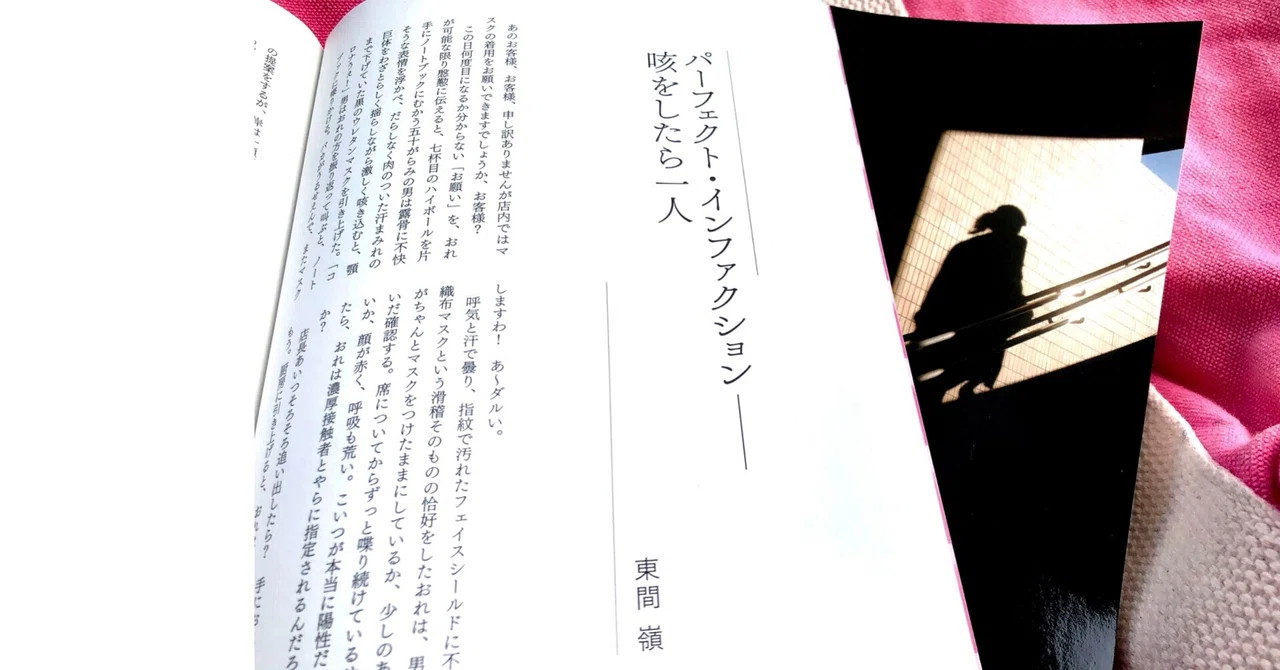 パーフェクト・インファクション――
咳をしたら一人
東間 嶺
あのお客様、お客様、申し訳ありませんが店内ではマ
スクの着用をお願いできますでしょうか、お客様?
この日何度目になるか分からない「お願い」を、おれ
が可能な限り慇懃に伝えると、七杯目のハイボールを片
手にノートブックにむかう五十がらみの男は露骨に不快
そうな表情を浮かべ、だらしなく肉のついた汗まみれの
巨体をわざとらしく揺らしながら激しく咳き込むと、顎
まで下げていた黒のウレタンマスクを引き上げた。「コ
ロナうぇー!男はおれの方を振り返って叫ぶと、ノート
しますわ! あ〜ダルい。
呼気と汗で曇り、指紋で汚れたフェイスシールドに不
織布マスクという滑稽そのものの恰好をしたおれは、男
がちゃんとマスクをつけたままにしているか、少しのあ
いだ確認する。席についてからずっと喋り続けている
いか、顔が赤く、呼吸も荒い。こいつが本当に陽性だ
たら、おれは濃厚接触者とやらに指定されるんだろ
か?
店長あいつそろそろ追い出したら?
もう。厨房に引き上げると、
手に
の提案をするが、